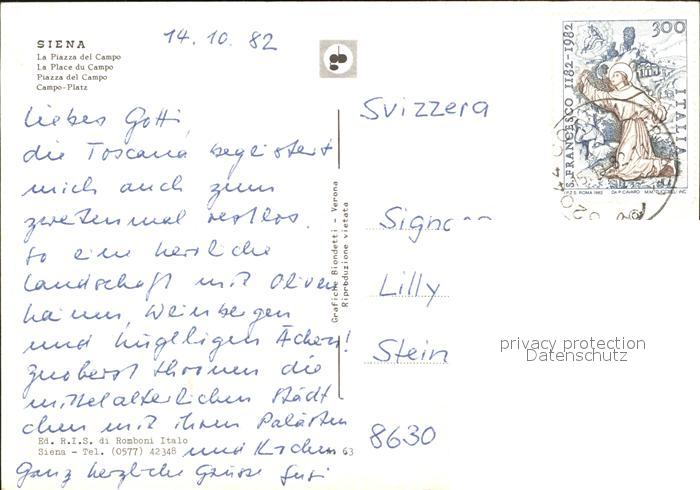 14.10.82
SIENA
La Piazza del Campo
La Place du Campo
Piazza del Campo
Campo-Platz
Liebes Gotti,
die Toscana begeistert
mich auch zum
zweitenmal restlos.
So eine herrliche
Landschaft mit Oliven
hainen, Weinbergen
und hügeligen Äckern!
Zuoberst thronen die
mittelalterlichen Städt
chen mit ihren Palästen
und Kirchen
Ganz herzliche Grüsse Susi
Ed. R.I.S. di Romboni Italo
Siena - Tel. (0577) 42348
63
Grafiche Biondetti - Verona
Riproduzione vietata
Svizzera
Signora
Lilly
Stein
8630
300
ITALIA
S. FRANCESCO 1182-1982
I.P.Z.S. ROMA 1982
privacy protection
Datenschutz